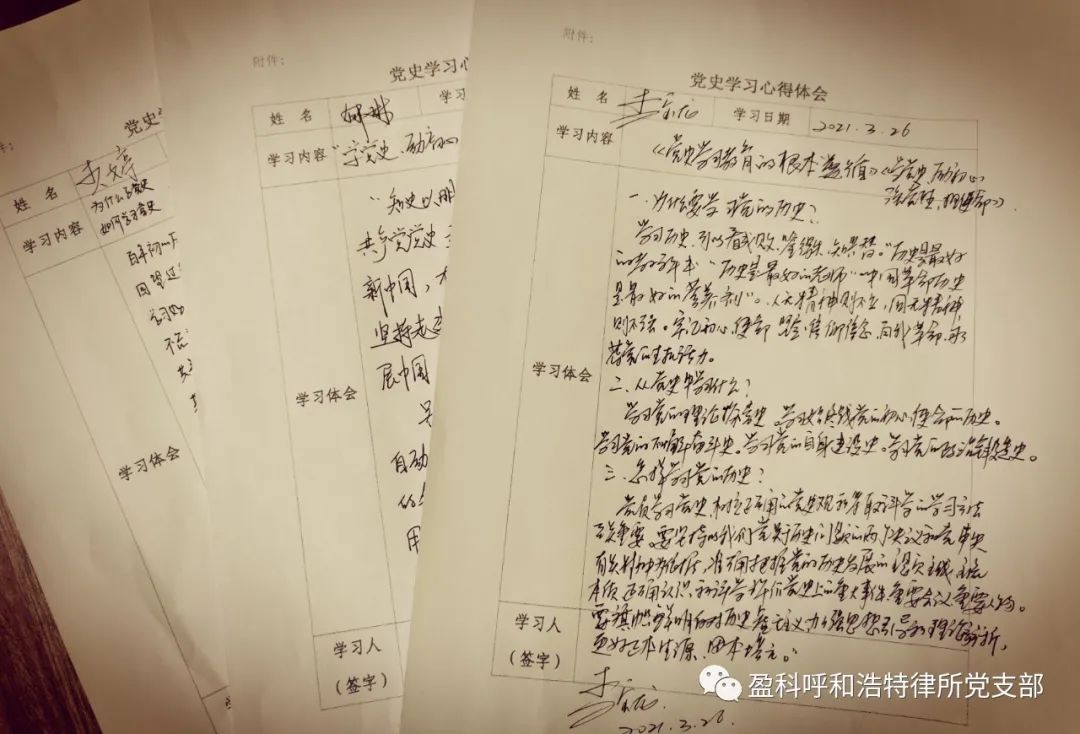 附件：
党史学习心得体会
姓 名
学习日期
2021.3.26
学习内容
《党史学习教育的根本价值》《学党史、励初心
一、为什么要学习党的历史？
学习历史，可以看成败、鉴得失、知兴替。"历史是最好
的教科书"，"历史是最好的老师"，"中国革命历史
是最好的营养剂"。人无精神则不立，国无精神
则不强。牢记初心使命、坚定信仰信念、
二、从党史中学习什么？
学习党的理论探索史。学习始终践行党的初心使命的历史。
学习党的不懈奋斗史。学习党的自身建设史。学习党的政治锻造史。
三、怎样学习党的历史？
党员学习党史，树立正确的党史观和采取科学的学习方法
至关重要。要坚持以我们党关于历史问题的两个决议和党中央
有关精神为依据，准确把握党的历史发展的主题主线、主流
本质，正确认识和科学评价党史上的重大事件、重要会议、重要人物。
要旗帜鲜明反对历史虚无主义，加强思想引导和理论辨析，
更好正本清源、固本培元。
学习体会
学习人
（签字）
2021.3.26
附件：
党史学习心
姓 名
学习
学习内容
"学党史、励初心
"知史以明
共产党党史
新中国，
坚持走
展中国
自动
用
学习体会
学习人
（签字）
件：
党史
姓 名
学习内容
为什么学党史
如何学习党史
百年初心
回望过
学习体会
盈科呼和浩特律所党支部